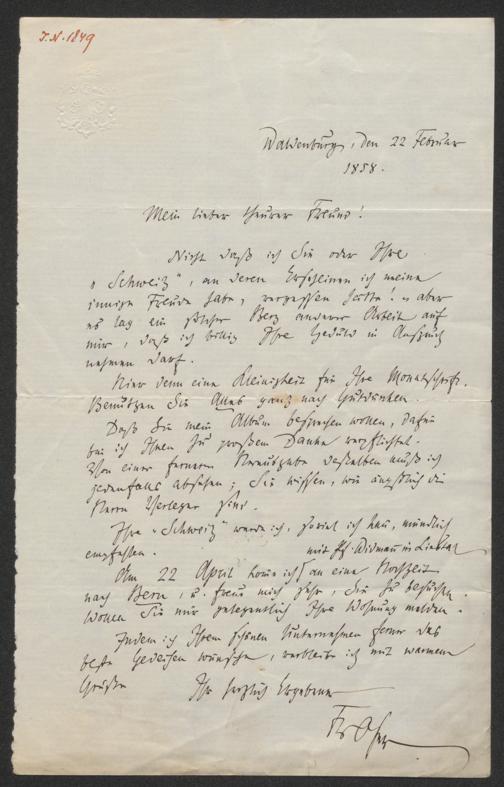 J.N. 1849
Waldenburg, den 22 Februar
1858.
Mein lieber theurer Freund!
Nicht daß ich Sie oder Ihre
„Schweiz“, an deren Erscheinen ich meine
innige Freude habe, vergessen hätte! – aber
es lag ein solcher Berg anderer Arbeit auf
mir, daß ich billig Ihre Geduld in Anspruch
nehmen darf.
Hier denn eine Kleinigkeit für Ihre Monatschrift.
Benützen Sie Alles ganz nach Gutdünken.
Daß Sie mein Album besprechen wollen, dafür
bin ich Ihnen zu großem Danke verpflichtet.
Von einer fernern Herausgabe desselben muß ich
jedenfalls absehen; Sie wissen, wie ängstlich die
Herrn Verleger sind.
Ihre „Schweiz“ werde ich, soviel ich kan, mündlich
empfehlen.
mit Pf. Widman in Liestal
Am 22 April kome ich an eine Hochzeit
nach Bern, u. freue mich sehr, Sie zu besuchen.
Wollen Sie mir gelegentlich Ihre Wohnung melden.
Indem ich Ihrem schönen Unternehmen ferner das
beste Gedeihen wünsche, verbleibe ich mit warmem
Gruße
Ihr herzlich Ergebener
Fr. Oser